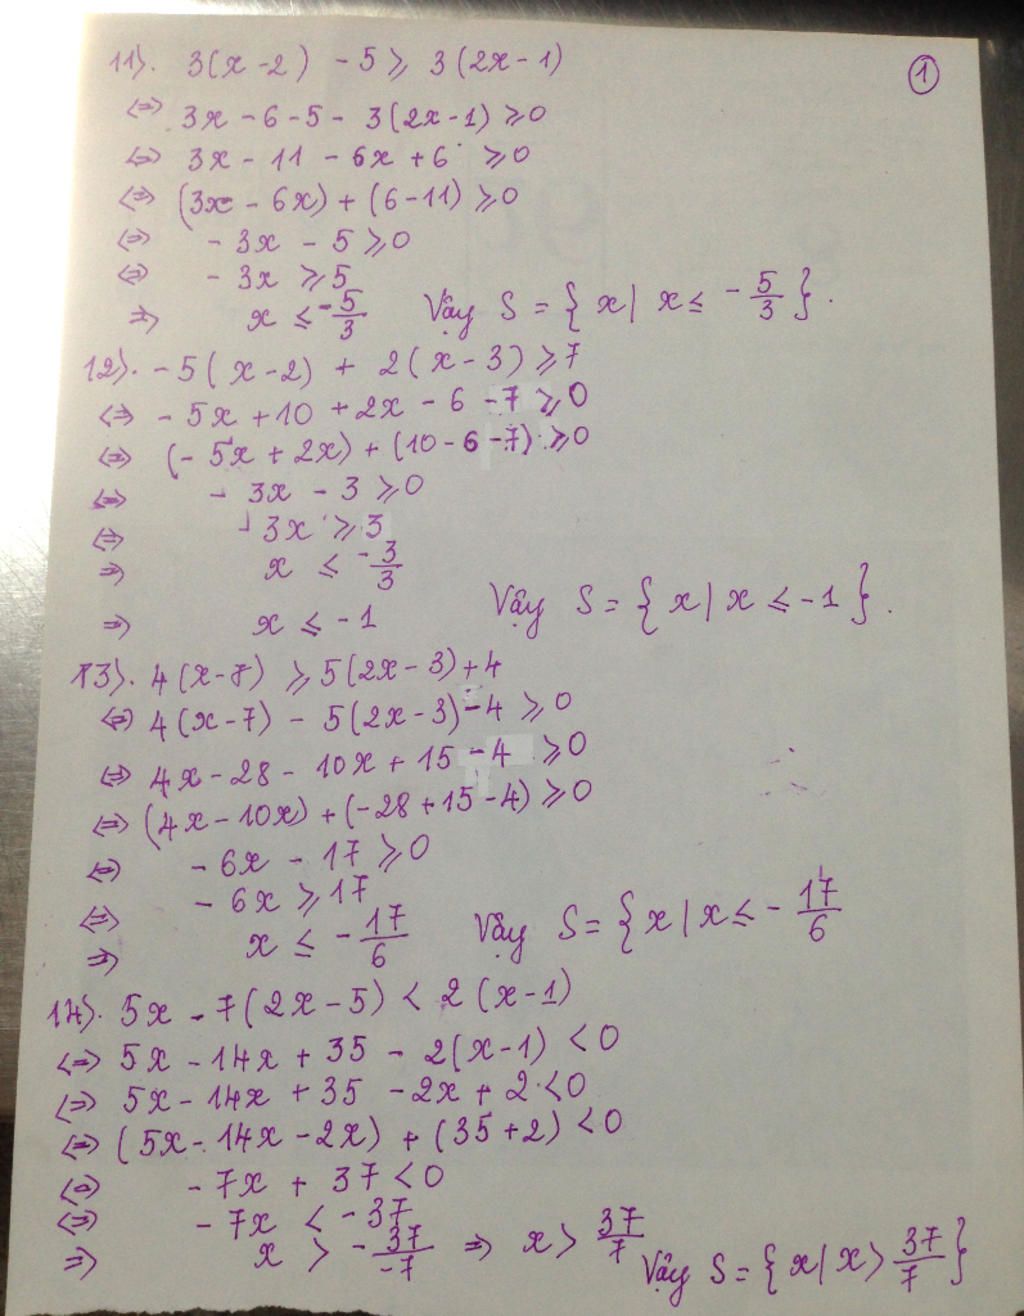 ①
11). 3(x-2) - 5 ⩾ 3(2x-1)
<=> 3x - 6 - 5 - 3(2x-1) ⩾ 0
<=> 3x - 11 - 6x + 6 ⩾ 0
<=> (3x - 6x) + (6-11) ⩾ 0
<=> - 3x - 5 ⩾ 0
<=> - 3x ⩾ 5
=> x ⩽ -5/3 Vậy S = { x | x ⩽ - 5/3 }.
12). - 5( x-2) + 2(x-3) ⩾ 7
<=> - 5x + 10 + 2x - 6 - 7 ⩾ 0
<=> (- 5x + 2x) + (10 - 6 - 7) ⩾ 0
<=> - 3x - 3 ⩾ 0
<=> - 3x ⩾ 3
=> x ⩽ -3/3
=> x ⩽ - 1 Vậy S = { x | x ⩽ -1 }.
13). 4(x-7) ⩾ 5(2x-3)+4
<=> 4(x-7) - 5(2x-3) - 4 ⩾ 0
<=> 4x - 28 - 10x + 15 - 4 ⩾ 0
<=> (4x - 10x) + (-28 + 15 - 4) ⩾ 0
<=> - 6x - 17 ⩾ 0
<=> - 6x ⩾ 17
=> x ⩽ - 17/6 Vậy S = { x | x ⩽ - 17/6
14). 5x - 7(2x-5) < 2(x-1)
<=> 5x - 14x + 35 - 2(x-1) < 0
<=> 5x - 14x + 35 - 2x + 2 < 0
<=> (5x - 14x - 2x) + (35+2) < 0
<=> - 7x + 37 < 0
<=> - 7x < - 37
=> x > - 37/-7 => x > 37/7 Vậy S = { x | x > 37/7 }